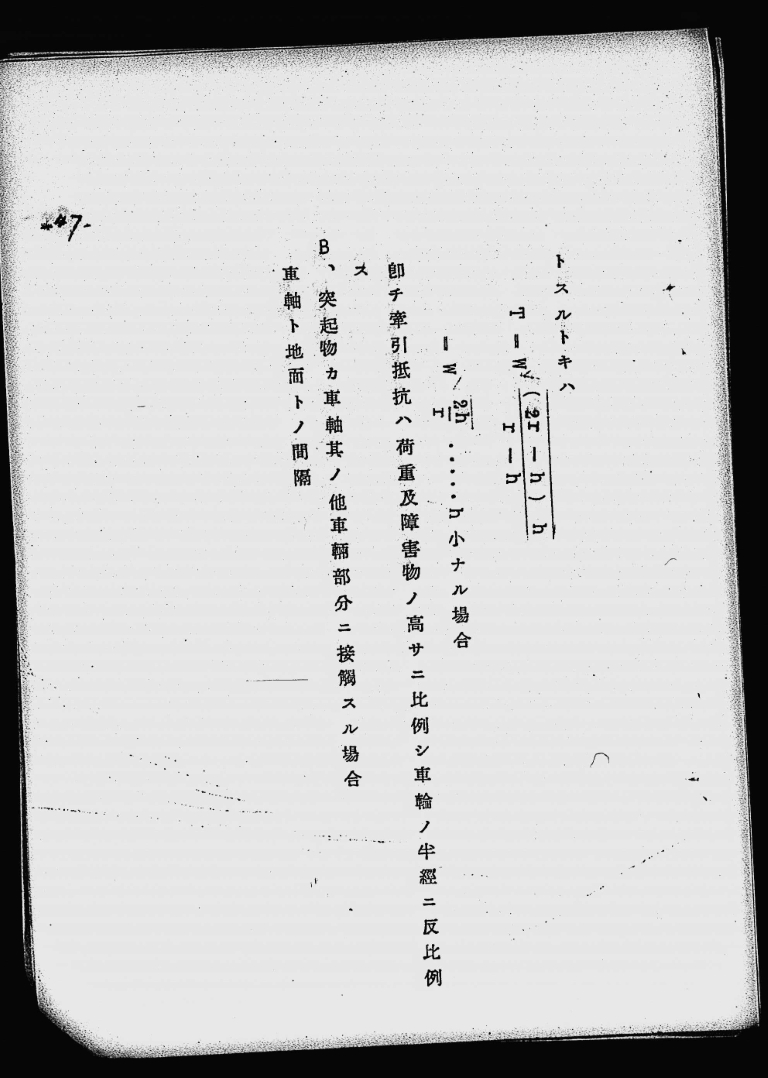 トスルトキハ
T=W√(2r-h)h/r-h
=W√2h/r ・・・・・h小ナル場合
卽チ牽引抵抗ハ荷重及障害物ノ高サニ比例シ車輪ノ半經ニ反比例
ス
B、突起物カ車軸其ノ他車輛部分ニ接觸スル場合
車軸ト地面トノ間隔
-47-